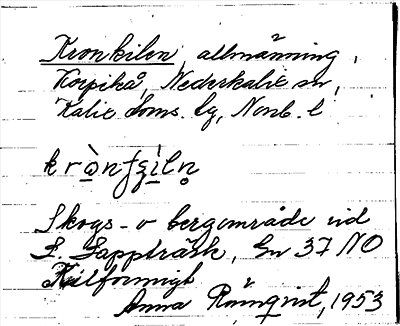 Kronkilen, allmänning,
Korpikå, Nederkalix sn,
Kalix doms. lg, Nonb. l
kròn
Skogs- o bergområde vid
S. Lappträsk, Gn 37 NO
Kilformigt
Anna Rönqvist, 1953